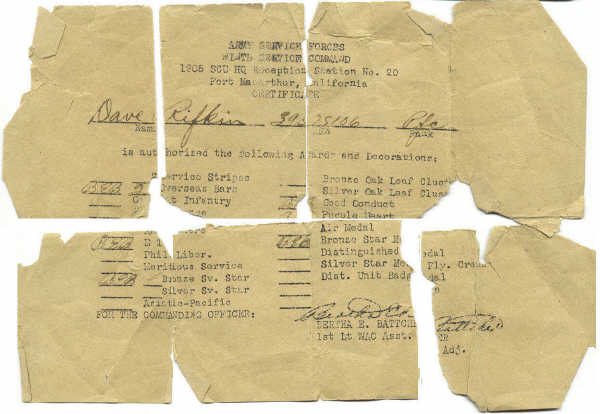 ARMY SERVICE FORCES
NINTH SERVICE COMMAND
1905 SCU HQ Reception Station No. 20
Fort MacArthur, California
CERTIFICATE
Dave Rifkin 39 Pfc
Name ASN Rank
is authorized the following Awards and Decorations:
Service Stripes
Overseas Bars
t Infantry
Phil Liber.
Meritious Service
Bronze Sv. Star
Silver Sv. Star
Asiatic-Pacific
Bronze Oak Leaf Clus
Silver Oak Leaf Clus
Good Conduct
Purple Heart
Air Medal
Bronze Star Me edal
Distinguished Fly. Cross
Silver Star Me dal
Dist. Unit Badg
FOR THE COMMANDING OFFICER:
BERTHA E. BATTCH ER
1st Lt WAC Asst. Adj.